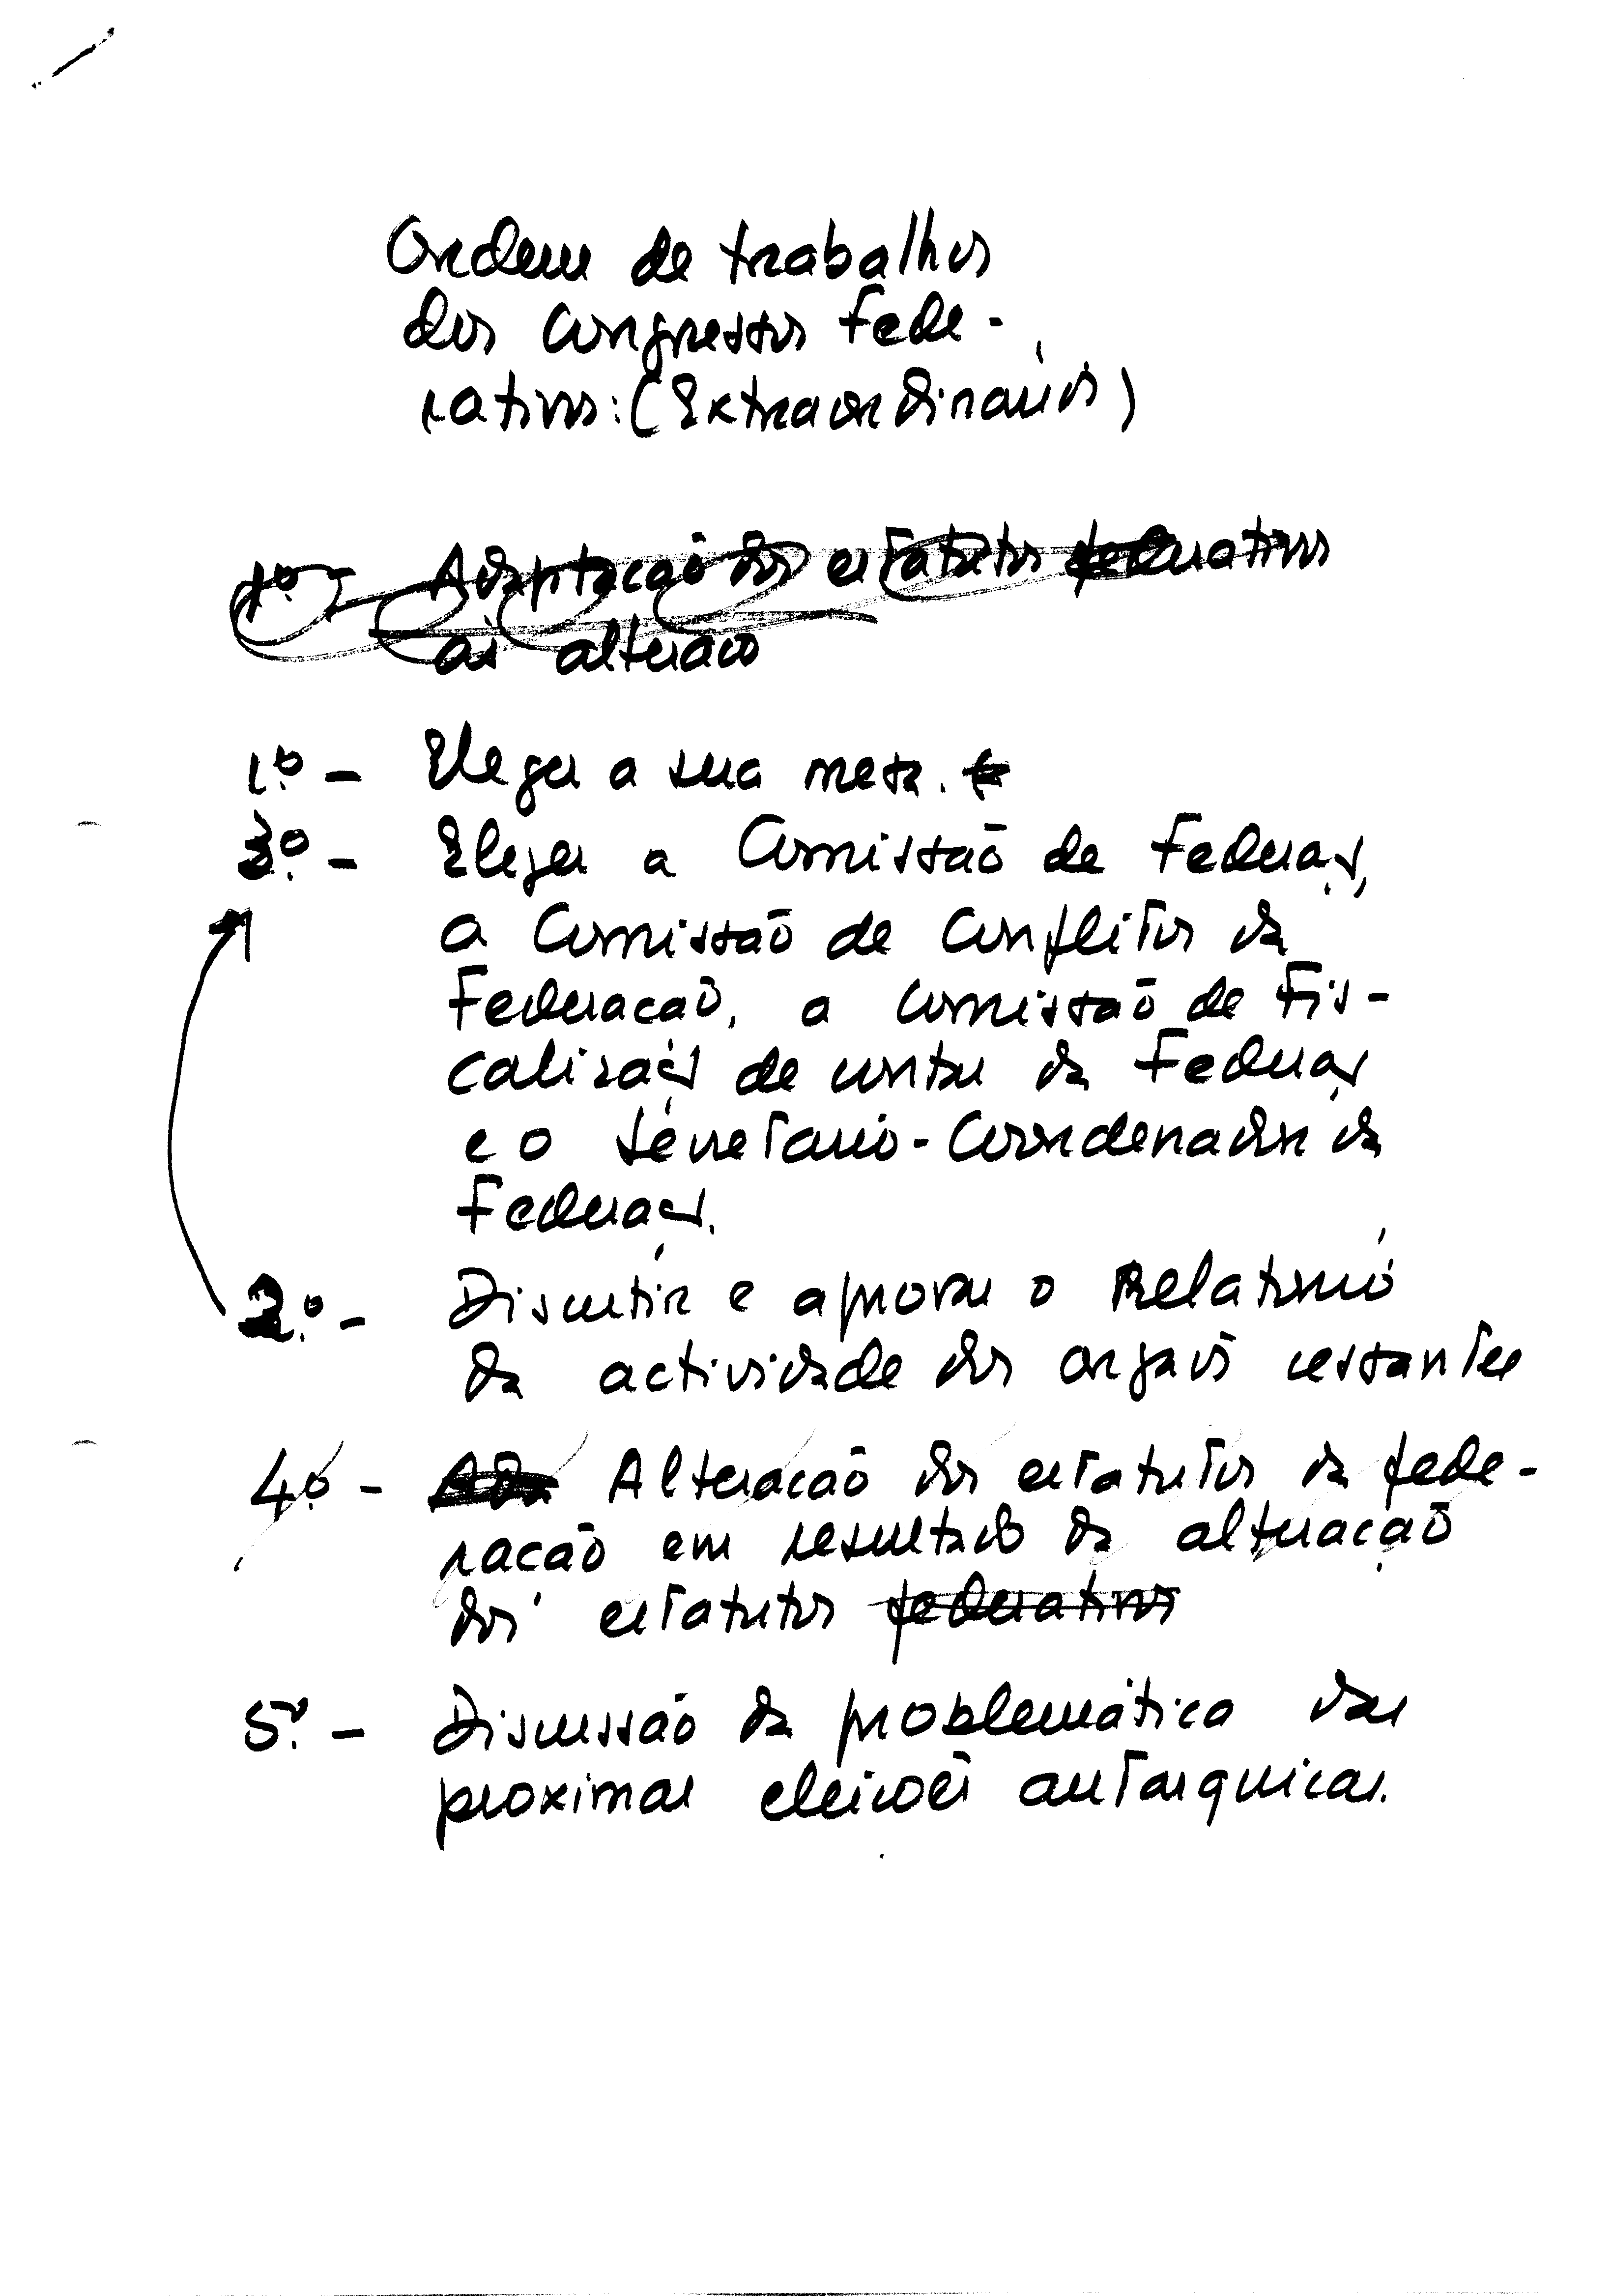 Ordem de trabalhos
dos Congressos Fede-
rativos: (Extraordinários)
1º - Adaptação dos estatutos federativos
às alteraçõ
1º - Eleger a sua mesa.
3º - Eleger a Comissão de Federação,
a Comissão de Conflitos da
Federação, a Comissão de Fis-
calização de contas da Federação
e o Secretário-Coordenador da
Federação.
2º - Discutir e aprovar o Relatório
da actividade dos orgãos cessantes
4º - Alteração dos estatutos da fede-
ração em resultado da alteração
dos estatutos federativos
5º - Discussão da problemática das
proximas eleições autarquicas.